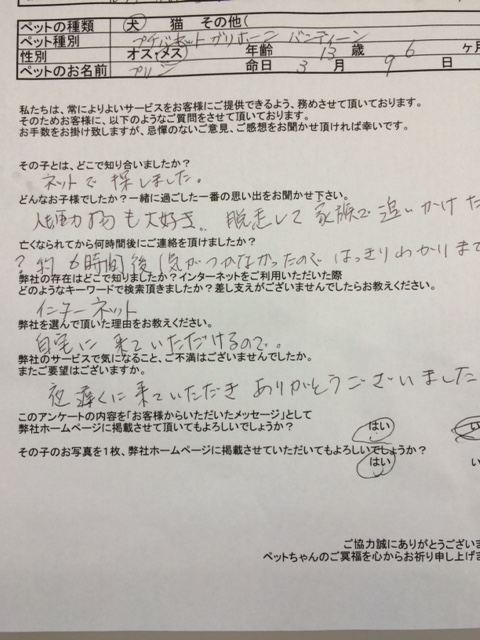 ペットの種類 犬 猫 その他(
ペット種別 プチバセットグリフォーン バンディーン
性別 オス・メス 年齢 13 歳 6 ヶ月
ペットのお名前 プリン 命日 3 月 9 日
私たちは、常によりよいサービスをお客様にご提供できるよう、務めさせて頂いております。
そのためお客様に、以下のようなご質問をさせて頂いております。
お手数をお掛け致しますが、忌憚のないご意見、ご感想をお聞かせ頂ければ幸いです。
その子とは、どこで知り合いましたか?
ネットで探しました。
どんなお子様でしたか?一緒に過ごした一番の思い出をお聞かせ下さい。
人も動物も大好き、脱走して家族で追いかけた
亡くなられてから何時間後にご連絡を頂けましたか?
? 約6時間後(気がつかなかったので はっきりわかりませ
弊社の存在はどこで知りましたか?インターネットをご利用いただいた際
どのようなキーワードで検索頂きましたか?差し支えがございませんでしたらお教えください。
インターネット
弊社を選んで頂いた理由をお教えください。
自宅に来ていただけるので。
弊社のサービスで気になること、ご不満はございませんでしたか。
またご要望はございますか。
夜遅くに来ていただき ありがとうございました
このアンケートの内容を「お客様からいただいたメッセージ」として
弊社ホームページに掲載させて頂いてもよろしいでしょうか? はい い
その子のお写真を1枚、弊社ホームページに掲載させていただいてもよろしいでしょうか?
はい い
ご協力誠にありがとうございま
ペットちゃんのご冥福を心からお祈り申し上げま